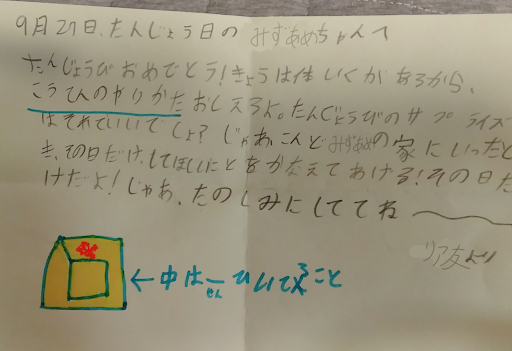 9月27日、たんじょう日の みずあめちゃんへ
たんじょうびおめでとう!きょうは体いくがあるから、
こうていのやりかたおしえるよ。たんじょうびのサプライズ
はそれでいいでしょ?じゃあ、こんどみずあめの家にいったと
き、その日だけ、してほしいことをかなえてあげる!その日だ
けだよ!じゃあ、たのしみにしててね
リア友より
←中は